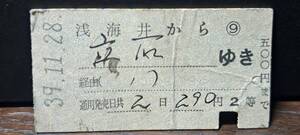 39.11.28.
浅海井から ㊈
ゆき
経由( )
通用発売日共 2 日 290 円 2 等
五〇〇円まで